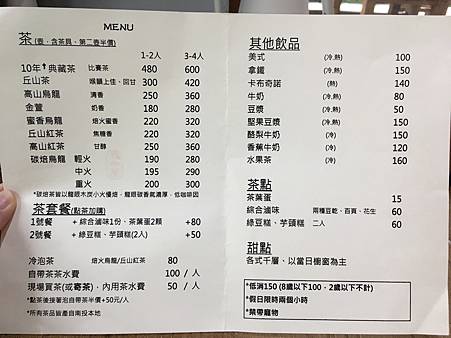 MENU
茶(壺,含茶具、第二壺半價)
1-2人 3-4人
10年↑典藏茶 比賽茶 480 600
丘山茶 喉韻上佳、回甘 300 420
高山烏龍 清香 250 360
金萱 奶香 180 280
蜜香烏龍 焙火蜜香 220 320
丘山紅茶 焦糖香 220 320
高山紅茶 甘醇 250 360
碳焙烏龍 輕火 190 280
中火 190 290
重火 200 300
*碳焙茶皆以龍眼木炭小火慢焙,龍眼碳香氣濃厚,低咖啡因
茶套餐(點茶加購)
1號餐 + 綜合滷味1份、茶葉蛋2顆 +80
2號餐 + 綠豆糕、芋頭糕(2人) +50
冷泡茶 焙火烏龍/丘山紅茶 80
自帶茶茶水費 100 / 人
現場買茶(或寄茶),內用茶水費 50 / 人
*點茶後接著泡自帶茶半價+50元/人
*所有茶品皆產自南投本地
其他飲品
美式 (冷.熱) 100
拿鐵 (冷.熱) 150
卡布奇諾 (熱) 140
牛奶 (冷.熱) 80
豆漿 (冷.熱) 50
堅果豆漿 (冷.熱) 150
酪梨牛奶 (冷) 150
香蕉牛奶 (冷) 120
水果茶 (冷) 160
茶點
茶葉蛋 15
綜合滷味 兩種豆乾、百頁、花生 60
綠豆糕、芋頭糕 二人 60
甜點
各式千層、以當日櫥窗為主
*低消150 (8歲以下100,2歲以下不計)
*假日限時兩個小時
*禁帶寵物